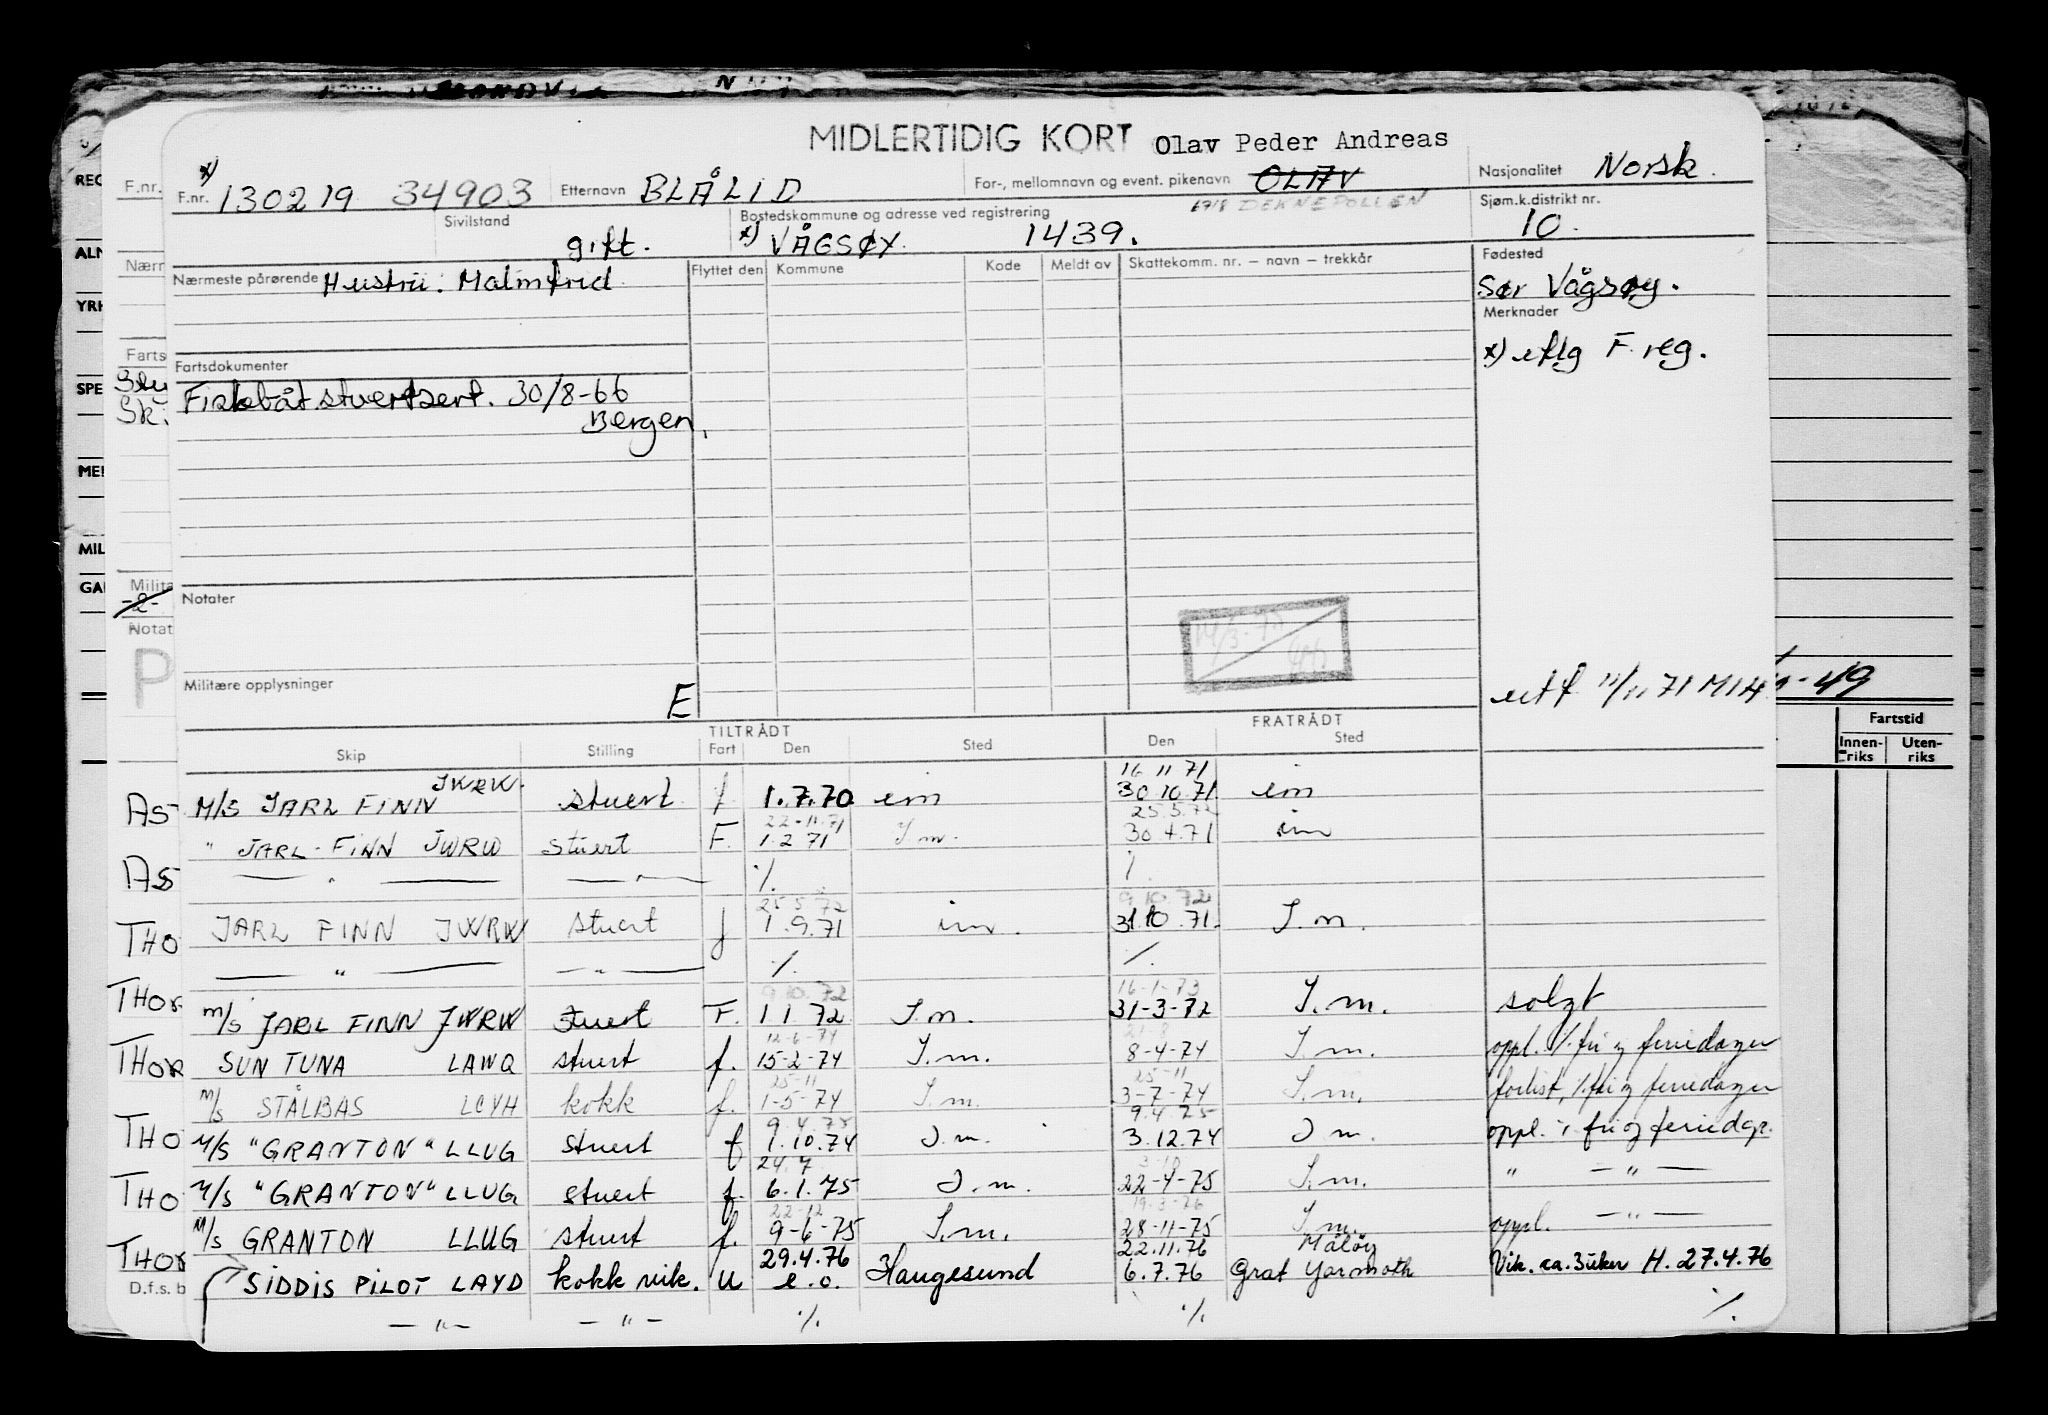 MIDLERTIDIG KORT Olav Peder Andreas
x) F.nr. 130219 34903 Etternavn BLÅLID For-, mellomnavn og event. pikenavn OLAV Nasjonalitet Norsk.
Sivilstand gift. Bostedskommune og adresse ved registrering 6718 DEKNEPOLLEN Sjøm.k.distrikt nr. 10.
x) VÅGSØY. 1439.
Nærmeste pårørende Hustru: Malmfrid Flyttet den Kommune Kode Meldt av Skattekomm. nr. — navn — trekkår Fødested
Sør Vågsøy.
Merknader
x) iflg F. reg.
Fartsdokumenter
Fiskbåtstuertsert. 30/8-66
Bergen.
Notater
Militære opplysninger E
utf 11/11 71 -49
TILTRÅDT FRATRÅDT
Skip Stilling Fart Den Sted Den Sted
JWRW. 16 11 71
M/S JARL FINN stuert f 1.7.70 im 30 10.71 im
22-11.71 25.5.72
" JARL-FINN JWRW stuert F. 1.2 71 I m. 30 4.71 im
— " — — " — %. %.
25 5 72 9 10.72
JARL FINN JWRW stuert f 1.9.71 im. 31.10.71. I.m.
— " — — " — %. %.
9 10.72 16-1-73
m/s JARL FINN JWRW stuert F. 1 1 72 I.m. 31-3-72 I.m. solgt
12-6-74 21-8
SUN TUNA LAWQ stuert f. 15-2-74 I.m. 8-4-74 I.m. oppl. %. fri og feriedager
25-11 25-11
m/s STÅLBAS LCYH kokk f. 1-5-74 I.m. 3-7-74 I.m. forlist, %. fri og feriedager
9.4.75 9.4.75
M/S "GRANTON" LLUG stuert f 1.10.74 I.m. 3.12.74 I m. oppl. % fri og feriedgr.
24.7 3-10
M/S "GRANTON" LLUG stuert f. 6.1.75 I.m. 22-4-75 I.m. " — " —
22-12 19.3-76
M/s GRANTON LLUG stuert f. 9-6-75 I.m. 28-11-75 I.m. oppl. — " —
29.4.76 22.11.76 Måløy
SIDDIS PILOT LAYD kokk vik. U e.o. Haugesund 6.7.76 Grat Yarmoth Vik. ca. 3 uker H. 27.4.76
— " — — " — %. %. %.
REG
F.nr.
ALN
Nærr
YRK
Farts
SPE
Sk.
MEI
MIL
Milita
GAI
-2-
Notat
P
AS
AS
THO
THOR
THOR
THO
THO
THOR
D.f.s. b
Fartstid
Innen-riks Uten-riks